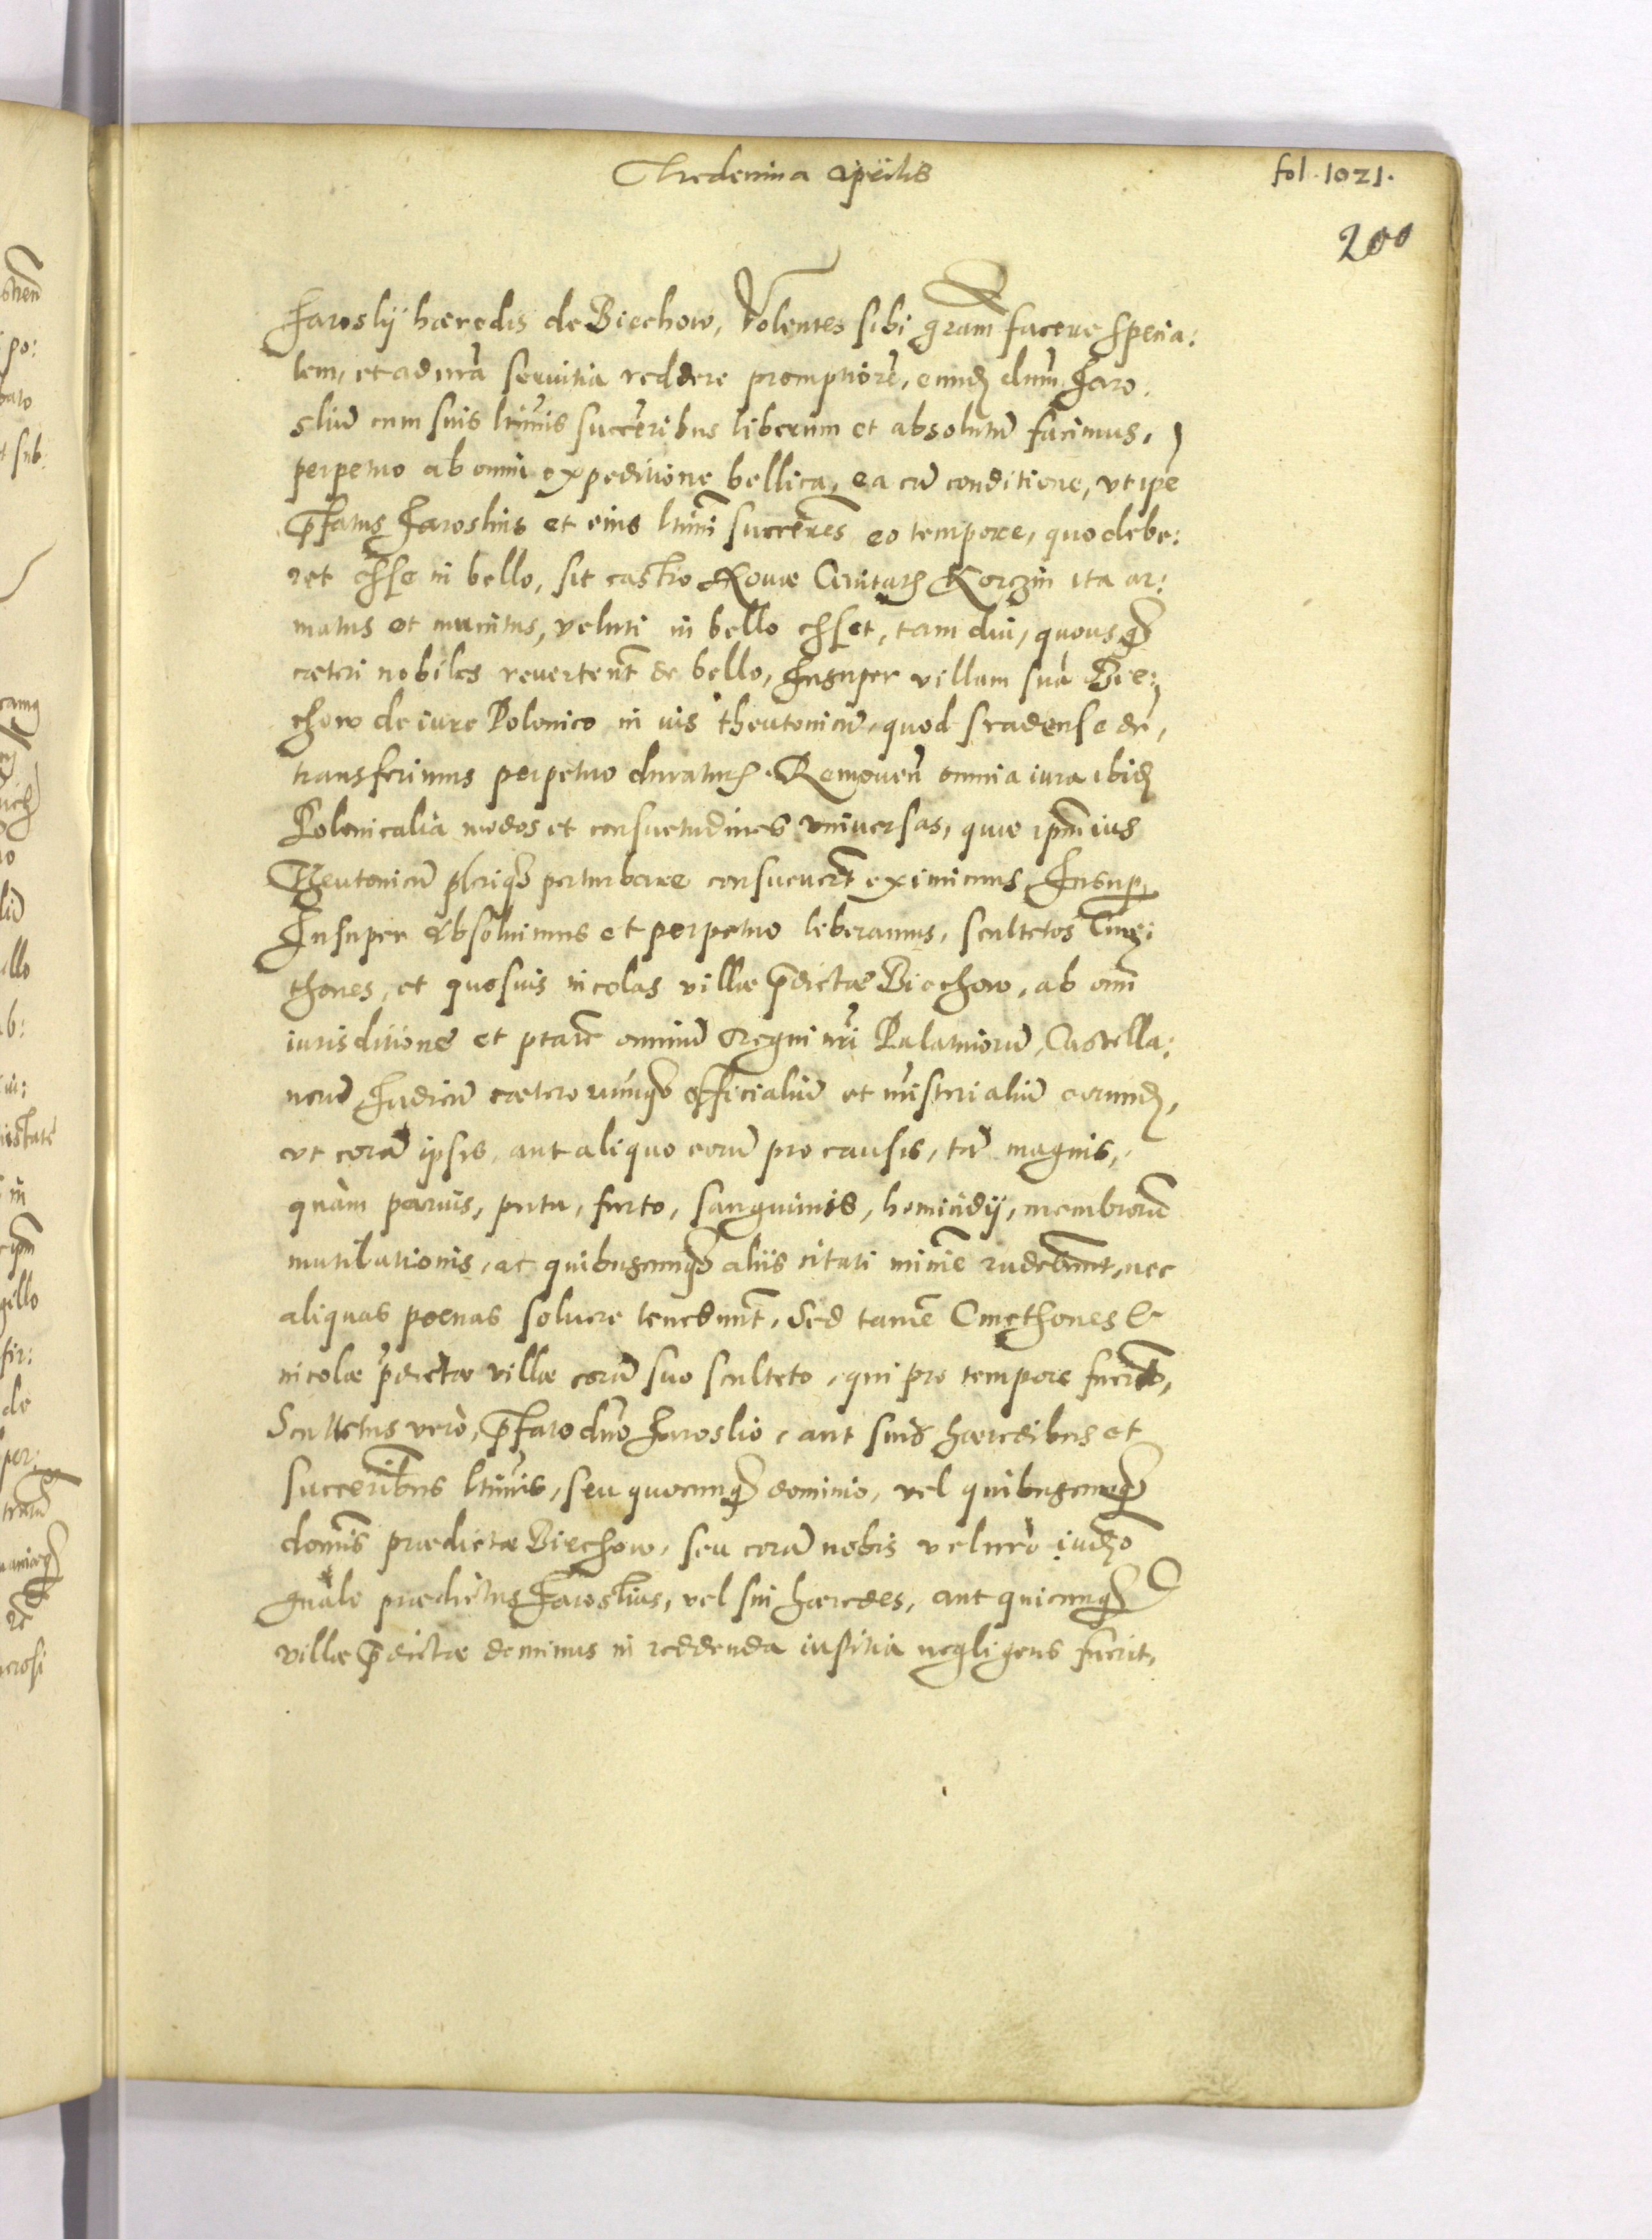 Tredecima Aprilis
fol. 1021.
200
Jaroslij hæredis de Biechow, Volentes sibi grãm facere specia:
lem, et ad nrã seruitia reddere promptiorẽ, eund dnum Jaro
sliũ cum suis ltimis succẽribus liberum et absolutũ facimus,
perpetuo ab omni expeditione bellica, ea cũ conditione, vt ipẽ
p̃fatus Jaroslius et eius ltimi succẽres eo tempore, quo debe:
ret esse in bello, sit castro Nouæ Ciuitatis Korczin ita ar:
matus et munitus, veluti in bello esset, tam diu, quousq
cæteri nobiles reuertent de bello, Insuper villam suã Bie:
chow de iure Polonico in ius theutonicũ, quod sradense dr̃,
transferimus perpetuo duraturũ. Remouen omnia iura ibid
Polonicalia modos et consuetudines vniuersas, quæ ipm ius
Theutonicũ plerũq perturbare consueuert eximimus Insup
Insuper absoluimus et perpetuo liberamus, scultetos Cme:
thones, et quosuis incolas villæ p̃dictæ Biechow, ab omi
iurisditione et ptate omniũ Regni nri Palatinorũ, Castella:
norũ Judicũ cæterorumq officialiũ et mĩsterialiũ eorund,
vt corã ipsis, aut aliquo eorũ pro causis, tã magnis,
quàm paruis, puta, furto, sanguinis, homicidij, membrorũ
mutilationis, ac quibuscunq aliis citati minime rñdebunt, nec
aliquas poenas soluere tenebunt, Sed tamẽ Cmethones &
incolæ p̃dictæ villæ corã suo sculteto, qui pro tempore fuerit,
Scultetus verò, p̃fato dno Jaroslio, aut suis hæredibus et
succẽribus ltimis, seu quocunq dominio, vel quibuscunq
domis prædictæ Biechow, seu corã nobis vel nrò iudẽo
gnãle prædictus Jaroslius, vel sui hæredes, aut quicunq
villæ p̃dictæ dominus in reddenda iustitia negligens fuerit,